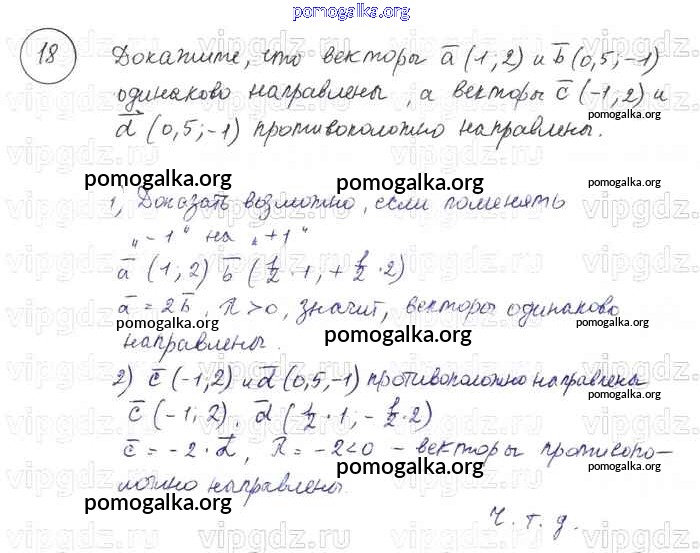 pomogalka.org
18 Докажите, что векторы a̅ (1; 2) и b̅ (0,5; -1)
одинаково направлены, а векторы c̅ (-1; 2) и
d̅ (0,5; -1) противоположно направлены.
pomogalka.org
pomogalka.org pomogalka.org pomogalka.org
1) Доказать возможно, если поменять
„-1“ на „+1“
a̅ (1; 2) b̅ (1/2 · 1; + 1/2 · 2)
a̅ = 2b̅, λ > 0, значит, векторы одинаково
направлены.
pomogalka.org pomogalka.org
2) c̅ (-1; 2) и d̅ (0,5; -1) противоположно направлены
c̅ (-1; 2), d̅ (1/2 · 1; - 1/2 · 2)
c̅ = -2 · d̅, λ = -2 < 0 - векторы противопо-
ложно направлены.
pomogalka.org pomogalka.org pomogalka.org
Ч. т. д.
vipgdz.ru